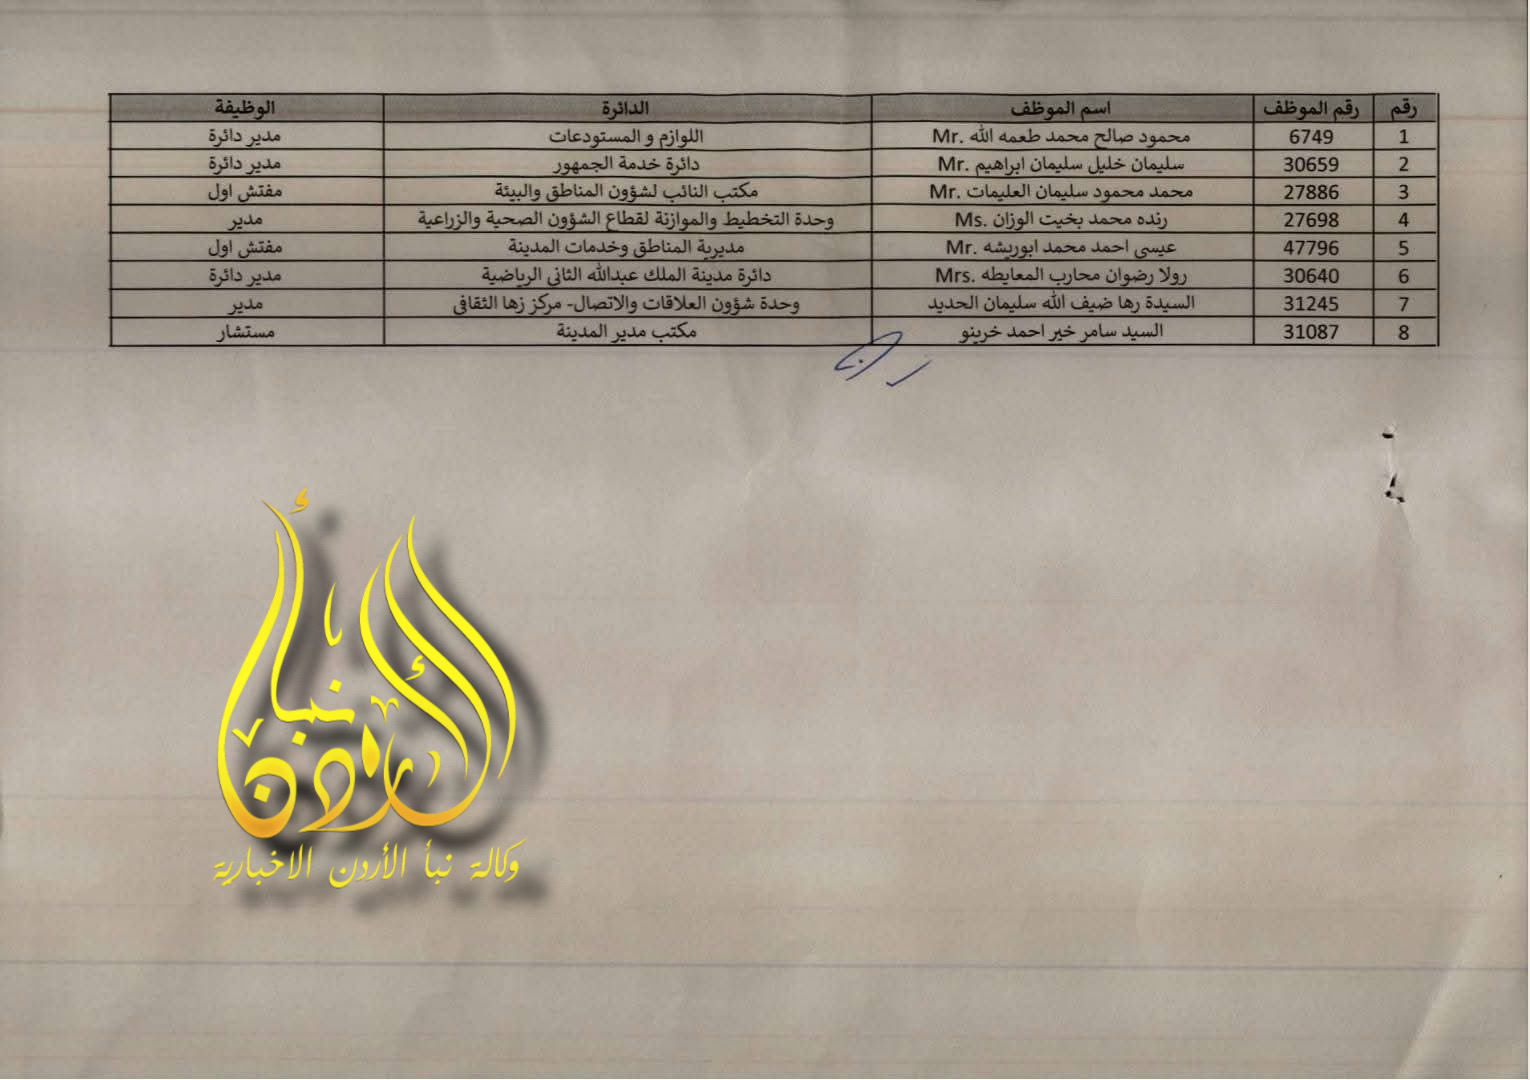 رقم رقم الموظف اسم الموظف الدائرة الوظيفة
1 6749 محمود صالح محمد طعمه الله .Mr اللوازم و المستودعات مدير دائرة
2 30659 سليمان خليل سليمان ابراهيم .Mr دائرة خدمة الجمهور مدير دائرة
3 27886 محمد محمود سليمان العليمات .Mr مكتب النائب لشؤون المناطق والبيئة مفتش اول
4 27698 رنده محمد بخيت الوزان .Ms وحدة التخطيط والموازنة لقطاع الشؤون الصحية والزراعية مدير
5 47796 عيسى احمد محمد ابوريشه .Mr مديرية المناطق وخدمات المدينة مفتش اول
6 30640 رولا رضوان محارب المعايطه .Mrs دائرة مدينة الملك عبدالله الثاني الرياضية مدير دائرة
7 31245 السيدة رها ضيف الله سليمان الحديد وحدة شؤون العلاقات والاتصال- مركز زها الثقافي مدير
8 31087 السيد سامر خير احمد خرينو مكتب مدير المدينة مستشار
نبأ الأردن
وكالة نبأ الأردن الاخبارية